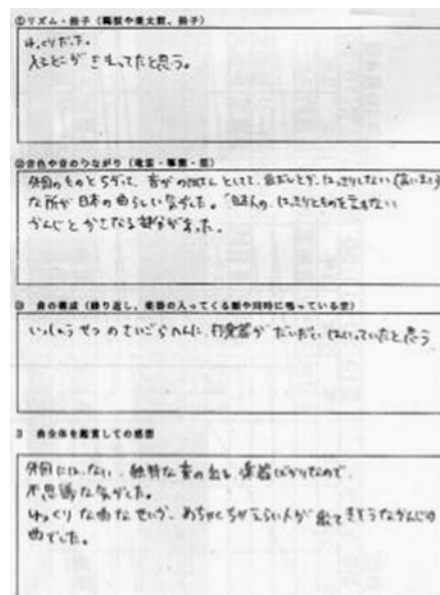 ①リズム・拍子（鞨鼓や楽太鼓、拍子）
ゆっくりだった。
入るとこが きまってたと思う。
②音色や音のつながり（竜笛・篳篥・笙）
外国のものとちがって、音が のばさんとしてて、出だしとか、はっきりしない（あいまい）
な所が 日本の曲らしい気がした。「日本人の、はっきりとものを言わない
かんじと かさなる部分があった。
③ 曲の構成（繰り返し、楽器の入ってくる順や同時に鳴っている音）
いっしょうせつ のさいごらへんに、打楽器が だいたい はいっていたと思う
3 曲全体を鑑賞しての感想
外国には、ない、独特な音の出る 楽器ばかりなので、
不思議な気がした。
ゆっくりな曲なせいか、めちゃくちゃえらい人が 出てきそうなかんじの
曲でした。